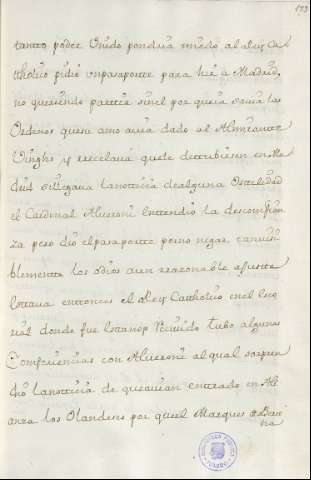 153
tanto poder Unido pondria miedo al al Rey Ca-
tholico pidio un pasaporte para hir a Madrid,
no queriendo partir sin el por que ia savia las
Ordenes que su amo avia dado al Almirante
Vinghs y recelava que le detubiesen en Ma-
drid si llegava la noticia de alguna Ostelidad
el Cardenal Alveroni entendio la desconfian
za pero dio el pasaporte por no negar tan visi
blemente los oidos a un reaconable ajuste
Estava entonces el Rey Catholico en el Esco
rial donde fue Estanop Recivido tubo algunas
Conferencias con Alveroni al qual sorpren
dio la noticia de que avian entrado en Ali
anza los Olandeses por que el Marques de Beri
tta